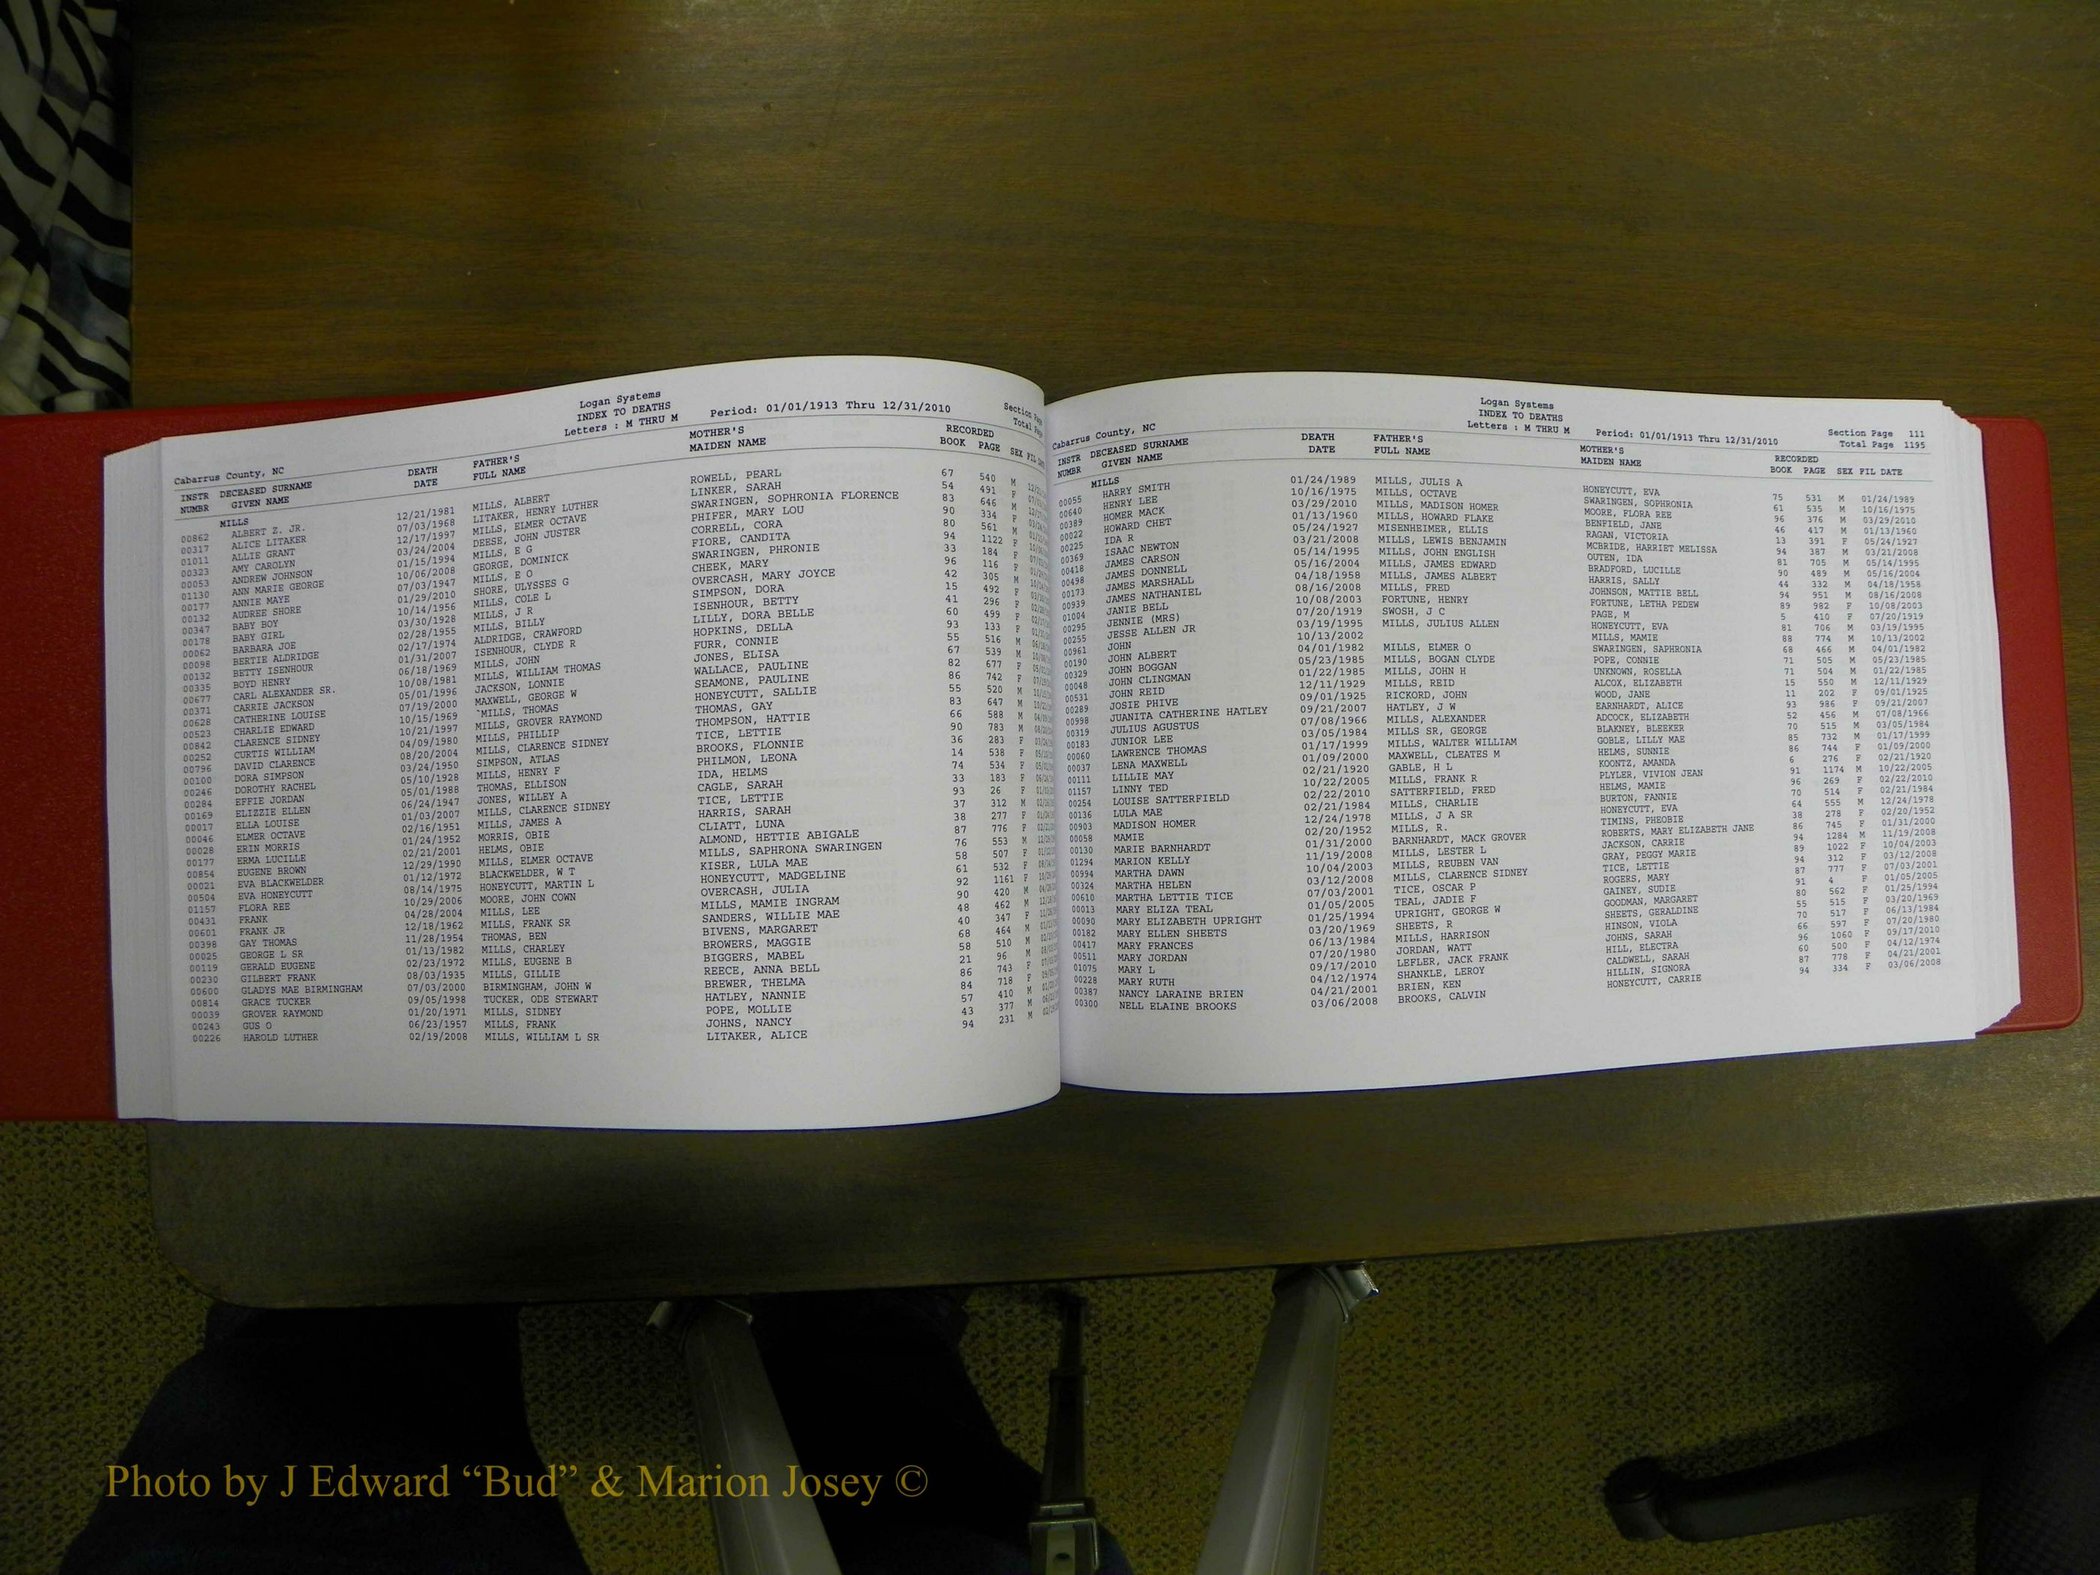 Logan Systems
INDEX TO DEATHS
Letters : M THRU M Period: 01/01/1913 Thru 12/31/2010 Section Page
Cabarrus County, NC Total Page
INSTR DECEASED SURNAME DEATH FATHER'S MOTHER'S RECORDED
NUMBR GIVEN NAME DATE FULL NAME MAIDEN NAME BOOK PAGE SEX FIL DATE
MILLS
00862 ALBERT Z. JR. 12/21/1981 MILLS, ALBERT ROWELL, PEARL 67 540 M
00317 ALICE LITAKER 07/03/1968 LITAKER, HENRY LUTHER LINKER, SARAH 54 491 F
01011 ALLIE GRANT 12/17/1997 MILLS, ELMER OCTAVE SWARINGEN, SOPHRONIA FLORENCE 83 646 M
00323 AMY CAROLYN 03/24/2004 DEESE, JOHN JUSTER PHIFER, MARY LOU 90 334 F
00053 ANDREW JOHNSON 01/15/1994 MILLS, E G CORRELL, CORA 80 561 M
01130 ANN MARIE GEORGE 10/06/2008 GEORGE, DOMINICK FIORE, CANDITA 94 1122 F
00177 ANNIE MAYE 07/03/1947 MILLS, E O SWARINGEN, PHRONIE 33 184 F
00132 AUDREE SHORE 01/29/2010 SHORE, ULYSSES G CHEEK, MARY 96 116 F
00347 BABY BOY 10/14/1956 MILLS, COLE L OVERCASH, MARY JOYCE 42 305 M
00178 BABY GIRL 03/30/1928 MILLS, J R SIMPSON, DORA 15 492 F
00062 BARBARA JOE 02/28/1955 MILLS, BILLY ISENHOUR, BETTY 41 296 F
00098 BERTIE ALDRIDGE 02/17/1974 ALDRIDGE, CRAWFORD LILLY, DORA BELLE 60 499 F
00132 BETTY ISENHOUR 01/31/2007 ISENHOUR, CLYDE R HOPKINS, DELLA 93 133 F
00335 BOYD HENRY 06/18/1969 MILLS, JOHN FURR, CONNIE 55 516 M
00677 CARL ALEXANDER SR. 10/08/1981 MILLS, WILLIAM THOMAS JONES, ELISA 67 539 M
00371 CARRIE JACKSON 05/01/1996 JACKSON, LONNIE WALLACE, PAULINE 82 677 F
00628 CATHERINE LOUISE 07/19/2000 MAXWELL, GEORGE W SEAMONE, PAULINE 86 742 F
00523 CHARLIE EDWARD 10/15/1969 `MILLS, THOMAS HONEYCUTT, SALLIE 55 520 M
00842 CLARENCE SIDNEY 10/21/1997 MILLS, GROVER RAYMOND THOMAS, GAY 83 647 M
00252 CURTIS WILLIAM 04/09/1980 MILLS, PHILLIP THOMPSON, HATTIE 66 588 M
00796 DAVID CLARENCE 08/20/2004 MILLS, CLARENCE SIDNEY TICE, LETTIE 90 783 M
00100 DORA SIMPSON 03/24/1950 SIMPSON, ATLAS BROOKS, FLONNIE 36 283 F
00246 DOROTHY RACHEL 05/10/1928 MILLS, HENRY F PHILMON, LEONA 14 538 F
00284 EFFIE JORDAN 05/01/1988 THOMAS, ELLISON IDA, HELMS 74 534 F
00169 ELIZZIE ELLEN 06/24/1947 JONES, WILLEY A CAGLE, SARAH 33 183 F
00017 ELLA LOUISE 01/03/2007 MILLS, CLARENCE SIDNEY TICE, LETTIE 93 26 F
00046 ELMER OCTAVE 02/16/1951 MILLS, JAMES A HARRIS, SARAH 37 312 M
00028 ERIN MORRIS 01/24/1952 MORRIS, OBIE CLIATT, LUNA 38 277 F
00177 ERMA LUCILLE 02/21/2001 HELMS, OBIE ALMOND, HETTIE ABIGALE 87 776 F
00854 EUGENE BROWN 12/29/1990 MILLS, ELMER OCTAVE MILLS, SAPHRONA SWARINGEN 76 553 M
00021 EVA BLACKWELDER 01/12/1972 BLACKWELDER, W T KISER, LULA MAE 58 507 F
00504 EVA HONEYCUTT 08/14/1975 HONEYCUTT, MARTIN L HONEYCUTT, MADGELINE 61 532 F
01157 FLORA REE 10/29/2006 MOORE, JOHN COWN OVERCASH, JULIA 92 1161 F
00431 FRANK 04/28/2004 MILLS, LEE MILLS, MAMIE INGRAM 90 420 M
00601 FRANK JR 12/18/1962 MILLS, FRANK SR SANDERS, WILLIE MAE 48 462 M
00398 GAY THOMAS 11/28/1954 THOMAS, BEN BIVENS, MARGARET 40 347 F
00025 GEORGE L SR 01/13/1982 MILLS, CHARLEY BROWERS, MAGGIE 68 464 M
00119 GERALD EUGENE 02/23/1972 MILLS, EUGENE B BIGGERS, MABEL 58 510 M
00230 GILBERT FRANK 08/03/1935 MILLS, GILLIE REECE, ANNA BELL 21 96 M
00600 GLADYS MAE BIRMINGHAM 07/03/2000 BIRMINGHAM, JOHN W BREWER, THELMA 86 743 F
00814 GRACE TUCKER 09/05/1998 TUCKER, ODE STEWART HATLEY, NANNIE 84 718 F
00039 GROVER RAYMOND 01/20/1971 MILLS, SIDNEY POPE, MOLLIE 57 410 M
00243 GUS O 06/23/1957 MILLS, FRANK JOHNS, NANCY 43 377 M
00226 HAROLD LUTHER 02/19/2008 MILLS, WILLIAM L SR LITAKER, ALICE 94 231 M
Logan Systems
INDEX TO DEATHS
Letters : M THRU M Period: 01/01/1913 Thru 12/31/2010 Section Page 111
Cabarrus County, NC Total Page 1195
INSTR DECEASED SURNAME DEATH FATHER'S MOTHER'S RECORDED
NUMBR GIVEN NAME DATE FULL NAME MAIDEN NAME BOOK PAGE SEX FIL DATE
MILLS
00055 HARRY SMITH 01/24/1989 MILLS, JULIS A HONEYCUTT, EVA 75 531 M 01/24/1989
00640 HENRY LEE 10/16/1975 MILLS, OCTAVE SWARINGEN, SOPHRONIA 61 535 M 10/16/1975
00389 HOMER MACK 03/29/2010 MILLS, MADISON HOMER MOORE, FLORA REE 96 376 M 03/29/2010
00022 HOWARD CHET 01/13/1960 MILLS, HOWARD FLAKE BENFIELD, JANE 46 417 M 01/13/1960
00225 IDA R 05/24/1927 MISENHEIMER, ELLIS RAGAN, VICTORIA 13 391 F 05/24/1927
00369 ISAAC NEWTON 03/21/2008 MILLS, LEWIS BENJAMIN MCBRIDE, HARRIET MELISSA 94 387 M 03/21/2008
00418 JAMES CARSON 05/14/1995 MILLS, JOHN ENGLISH OUTEN, IDA 81 705 M 05/14/1995
00498 JAMES DONNELL 05/16/2004 MILLS, JAMES EDWARD BRADFORD, LUCILLE 90 489 M 05/16/2004
00173 JAMES MARSHALL 04/18/1958 MILLS, JAMES ALBERT HARRIS, SALLY 44 332 M 04/18/1958
00939 JAMES NATHANIEL 08/16/2008 MILLS, FRED JOHNSON, MATTIE BELL 94 951 M 08/16/2008
01004 JANIE BELL 10/08/2003 FORTUNE, HENRY FORTUNE, LETHA PEDEW 89 982 F 10/08/2003
00295 JENNIE (MRS) 07/20/1919 SWOSH, J C PAGE, M 5 410 F 07/20/1919
00255 JESSE ALLEN JR 03/19/1995 MILLS, JULIUS ALLEN HONEYCUTT, EVA 81 706 M 03/19/1995
00961 JOHN 10/13/2002 MILLS, MAMIE 88 774 M 10/13/2002
00190 JOHN ALBERT 04/01/1982 MILLS, ELMER O SWARINGEN, SAPHRONIA 68 466 M 04/01/1982
00329 JOHN BOGGAN 05/23/1985 MILLS, BOGAN CLYDE POPE, CONNIE 71 505 M 05/23/1985
00048 JOHN CLINGMAN 01/22/1985 MILLS, JOHN H UNKNOWN, ROSELLA 71 504 M 01/22/1985
00531 JOHN REID 12/11/1929 MILLS, REID ALCOX, ELIZABETH 15 550 M 12/11/1929
00289 JOSIE PHIVE 09/01/1925 RICKORD, JOHN WOOD, JANE 11 202 F 09/01/1925
00998 JUANITA CATHERINE HATLEY 09/21/2007 HATLEY, J W EARNHARDT, ALICE 93 986 F 09/21/2007
00319 JULIUS AUGUSTUS 07/08/1966 MILLS, ALEXANDER ADCOCK, ELIZABETH 52 456 M 07/08/1966
00183 JUNIOR LEE 03/05/1984 MILLS SR, GEORGE BLAKNEY, BLEEKER 70 515 M 03/05/1984
00060 LAWRENCE THOMAS 01/17/1999 MILLS, WALTER WILLIAM GOBLE, LILLY MAE 85 732 M 01/17/1999
00037 LENA MAXWELL 01/09/2000 MAXWELL, CLEATES M HELMS, SUNNIE 86 744 F 01/09/2000
00111 LILLIE MAY 02/21/1920 GABLE, H L KOONTZ, AMANDA 6 276 F 02/21/1920
01157 LINNY TED 10/22/2005 MILLS, FRANK R PLYLER, VIVION JEAN 91 1174 M 10/22/2005
00254 LOUISE SATTERFIELD 02/22/2010 SATTERFIELD, FRED HELMS, MAMIE 96 269 F 02/22/2010
00136 LULA MAE 02/21/1984 MILLS, CHARLIE BURTON, FANNIE 70 514 F 02/21/1984
00903 MADISON HOMER 12/24/1978 MILLS, J A SR HONEYCUTT, EVA 64 555 M 12/24/1978
00058 MAMIE 02/20/1952 MILLS, R. TIMINS, PHEOBIE 38 278 F 02/20/1952
00130 MARIE BARNHARDT 01/31/2000 BARNHARDT, MACK GROVER ROBERTS, MARY ELIZABETH JANE 86 745 F 01/31/2000
01294 MARION KELLY 11/19/2008 MILLS, LESTER L JACKSON, CARRIE 94 1284 M 11/19/2008
00994 MARTHA DAWN 10/04/2003 MILLS, REUBEN VAN GRAY, PEGGY MARIE 89 1022 F 10/04/2003
00324 MARTHA HELEN 03/12/2008 MILLS, CLARENCE SIDNEY TICE, LETTIE 94 312 F 03/12/2008
00610 MARTHA LETTIE TICE 07/03/2001 TICE, OSCAR P ROGERS, MARY 87 777 F 07/03/2001
00013 MARY ELIZA TEAL 01/05/2005 TEAL, JADIE F GAINEY, SUDIE 91 4 F 01/05/2005
00090 MARY ELIZABETH UPRIGHT 01/25/1994 UPRIGHT, GEORGE W GOODMAN, MARGARET 80 562 F 01/25/1994
00182 MARY ELLEN SHEETS 03/20/1969 SHEETS, R SHEETS, GERALDINE 55 515 F 03/20/1969
00417 MARY FRANCES 06/13/1984 MILLS, HARRISON HINSON, VIOLA 70 517 F 06/13/1984
00511 MARY JORDAN 07/20/1980 JORDAN, WATT JOHNS, SARAH 66 597 F 07/20/1980
01075 MARY L 09/17/2010 LEFLER, JACK FRANK HILL, ELECTRA 96 1060 F 09/17/2010
00228 MARY RUTH 04/12/1974 SHANKLE, LEROY CALDWELL, SARAH 60 500 F 04/12/1974
00387 NANCY LARAINE BRIEN 04/21/2001 BRIEN, KEN HILLIN, SIGNORA 87 778 F 04/21/2001
00300 NELL ELAINE BROOKS 03/06/2008 BROOKS, CALVIN HONEYCUTT, CARRIE 94 334 F 03/06/2008
Photo by J Edward “Bud” & Marion Josey ©